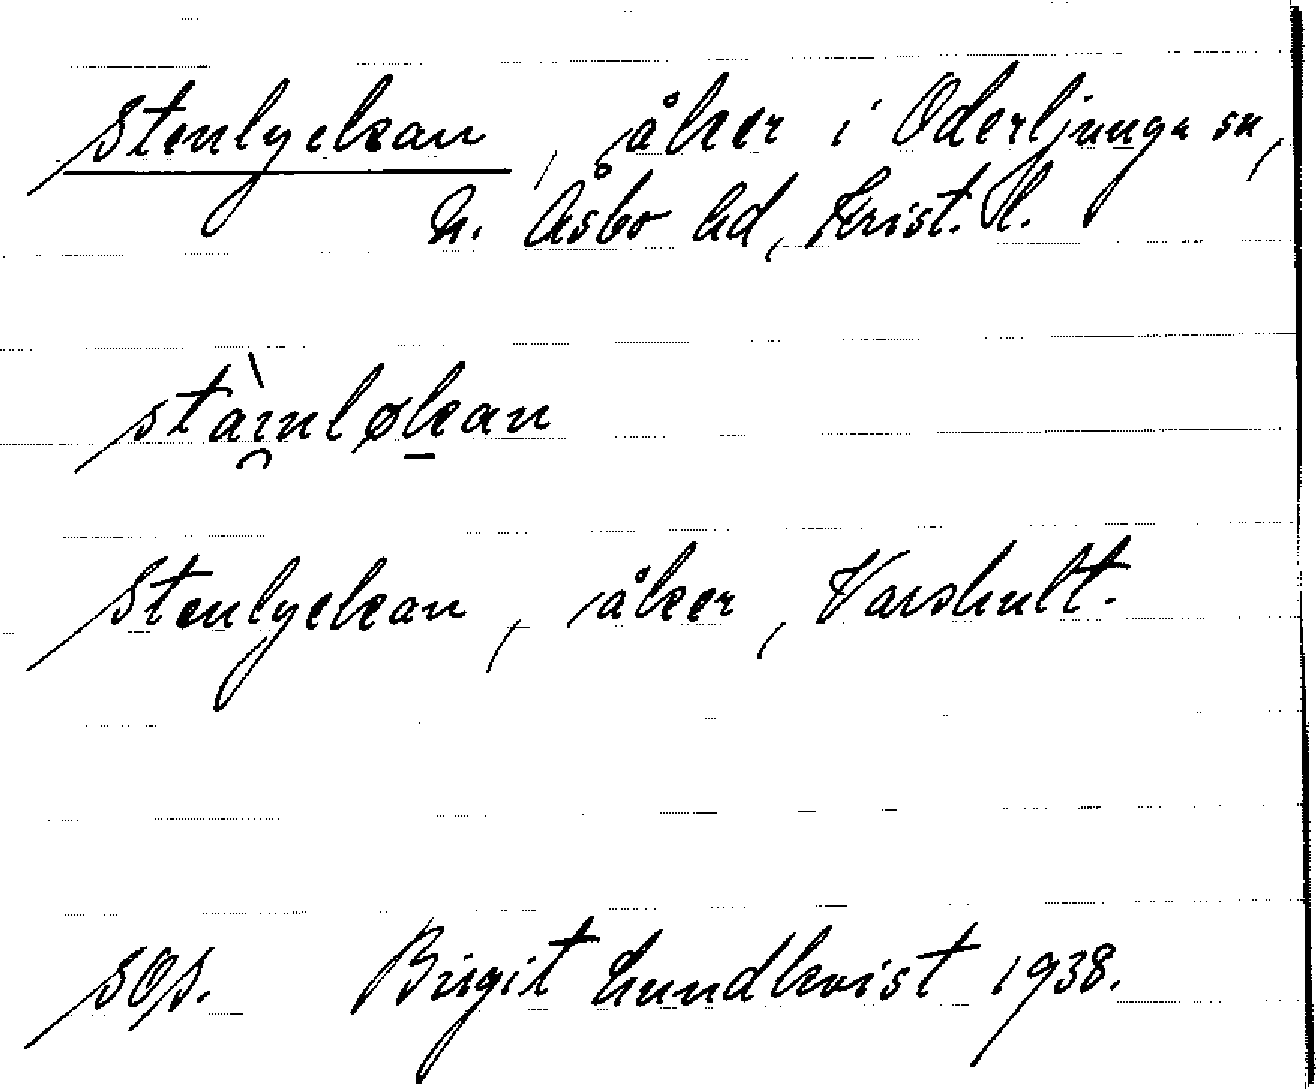 Stenlyckan, åker i Oderljunga sn,
N. Åsbo hd, Krist. l.
stàɪ̯nløk̠an
Stenlyckan, åker, Varshult.
SOS. Birgit Lundkvist 1938.